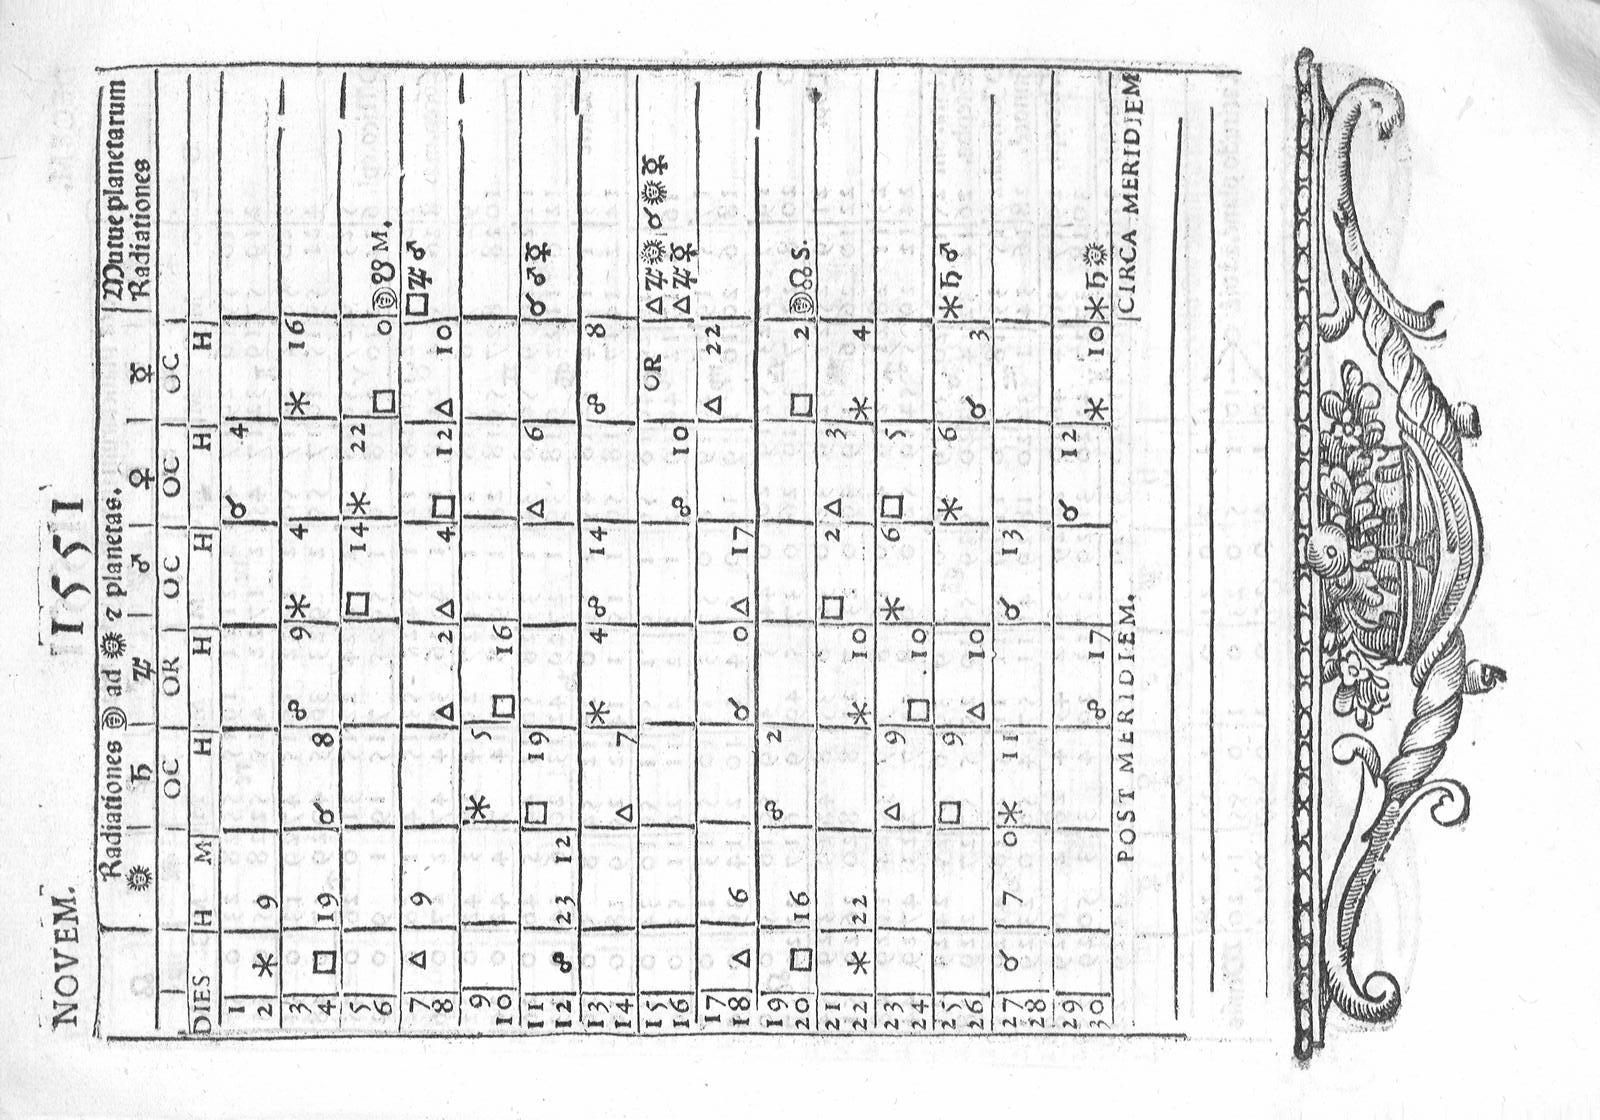 NOVEM. 1551
Radiationes ☽ ad ☉ ⁊ planetas. Mutue planetarum
☉ ♄ ♃ ♂ ♀ ☿ Radiationes
OC OR OC OC OC
DIES H M H H H H H
1 ☌ 4
2 ⚹ 9
3 ☍ 9 ⚹ 4 ⚹ 16
4 □ 19 ☌ 8
5 □ 14 ⚹ 22
6 □ 0 ☽☋ M.
7 △ 9 □♃♂
8 △ 2 △ 4 □ 12 △ 10
9 ⚹ 5
10 □ 16
11 □ 19 △ 6 ☌♂☿
12 ☍ 23 12
13 ⚹ 4 ☍ 14 ☍ 8
14 △ 7
15 OR △♃☉ ☌☉☿
16 ☍ 10 △♃☿
17 △ 22
18 △ 6 ☌ 0 △ 17
19 ☍ 2
20 □ 16 □ 2 ☽☊ S.
21 □ 2 △ 3
22 ⚹ 22 ⚹ 10 ⚹ 4
23 △ 9 ⚹ 6 □ 5
24 □ 10
25 □ 9 ⚹ 6 ⚹♄♂
26 △ 10 ☌ 3
27 ☌ 7 0 ⚹ 11 ☌ 13
28
29 ☌ 12
30 ☍ 17 ⚹ 10 ⚹♄☉
POST MERIDIEM. CIRCA MERIDIEM